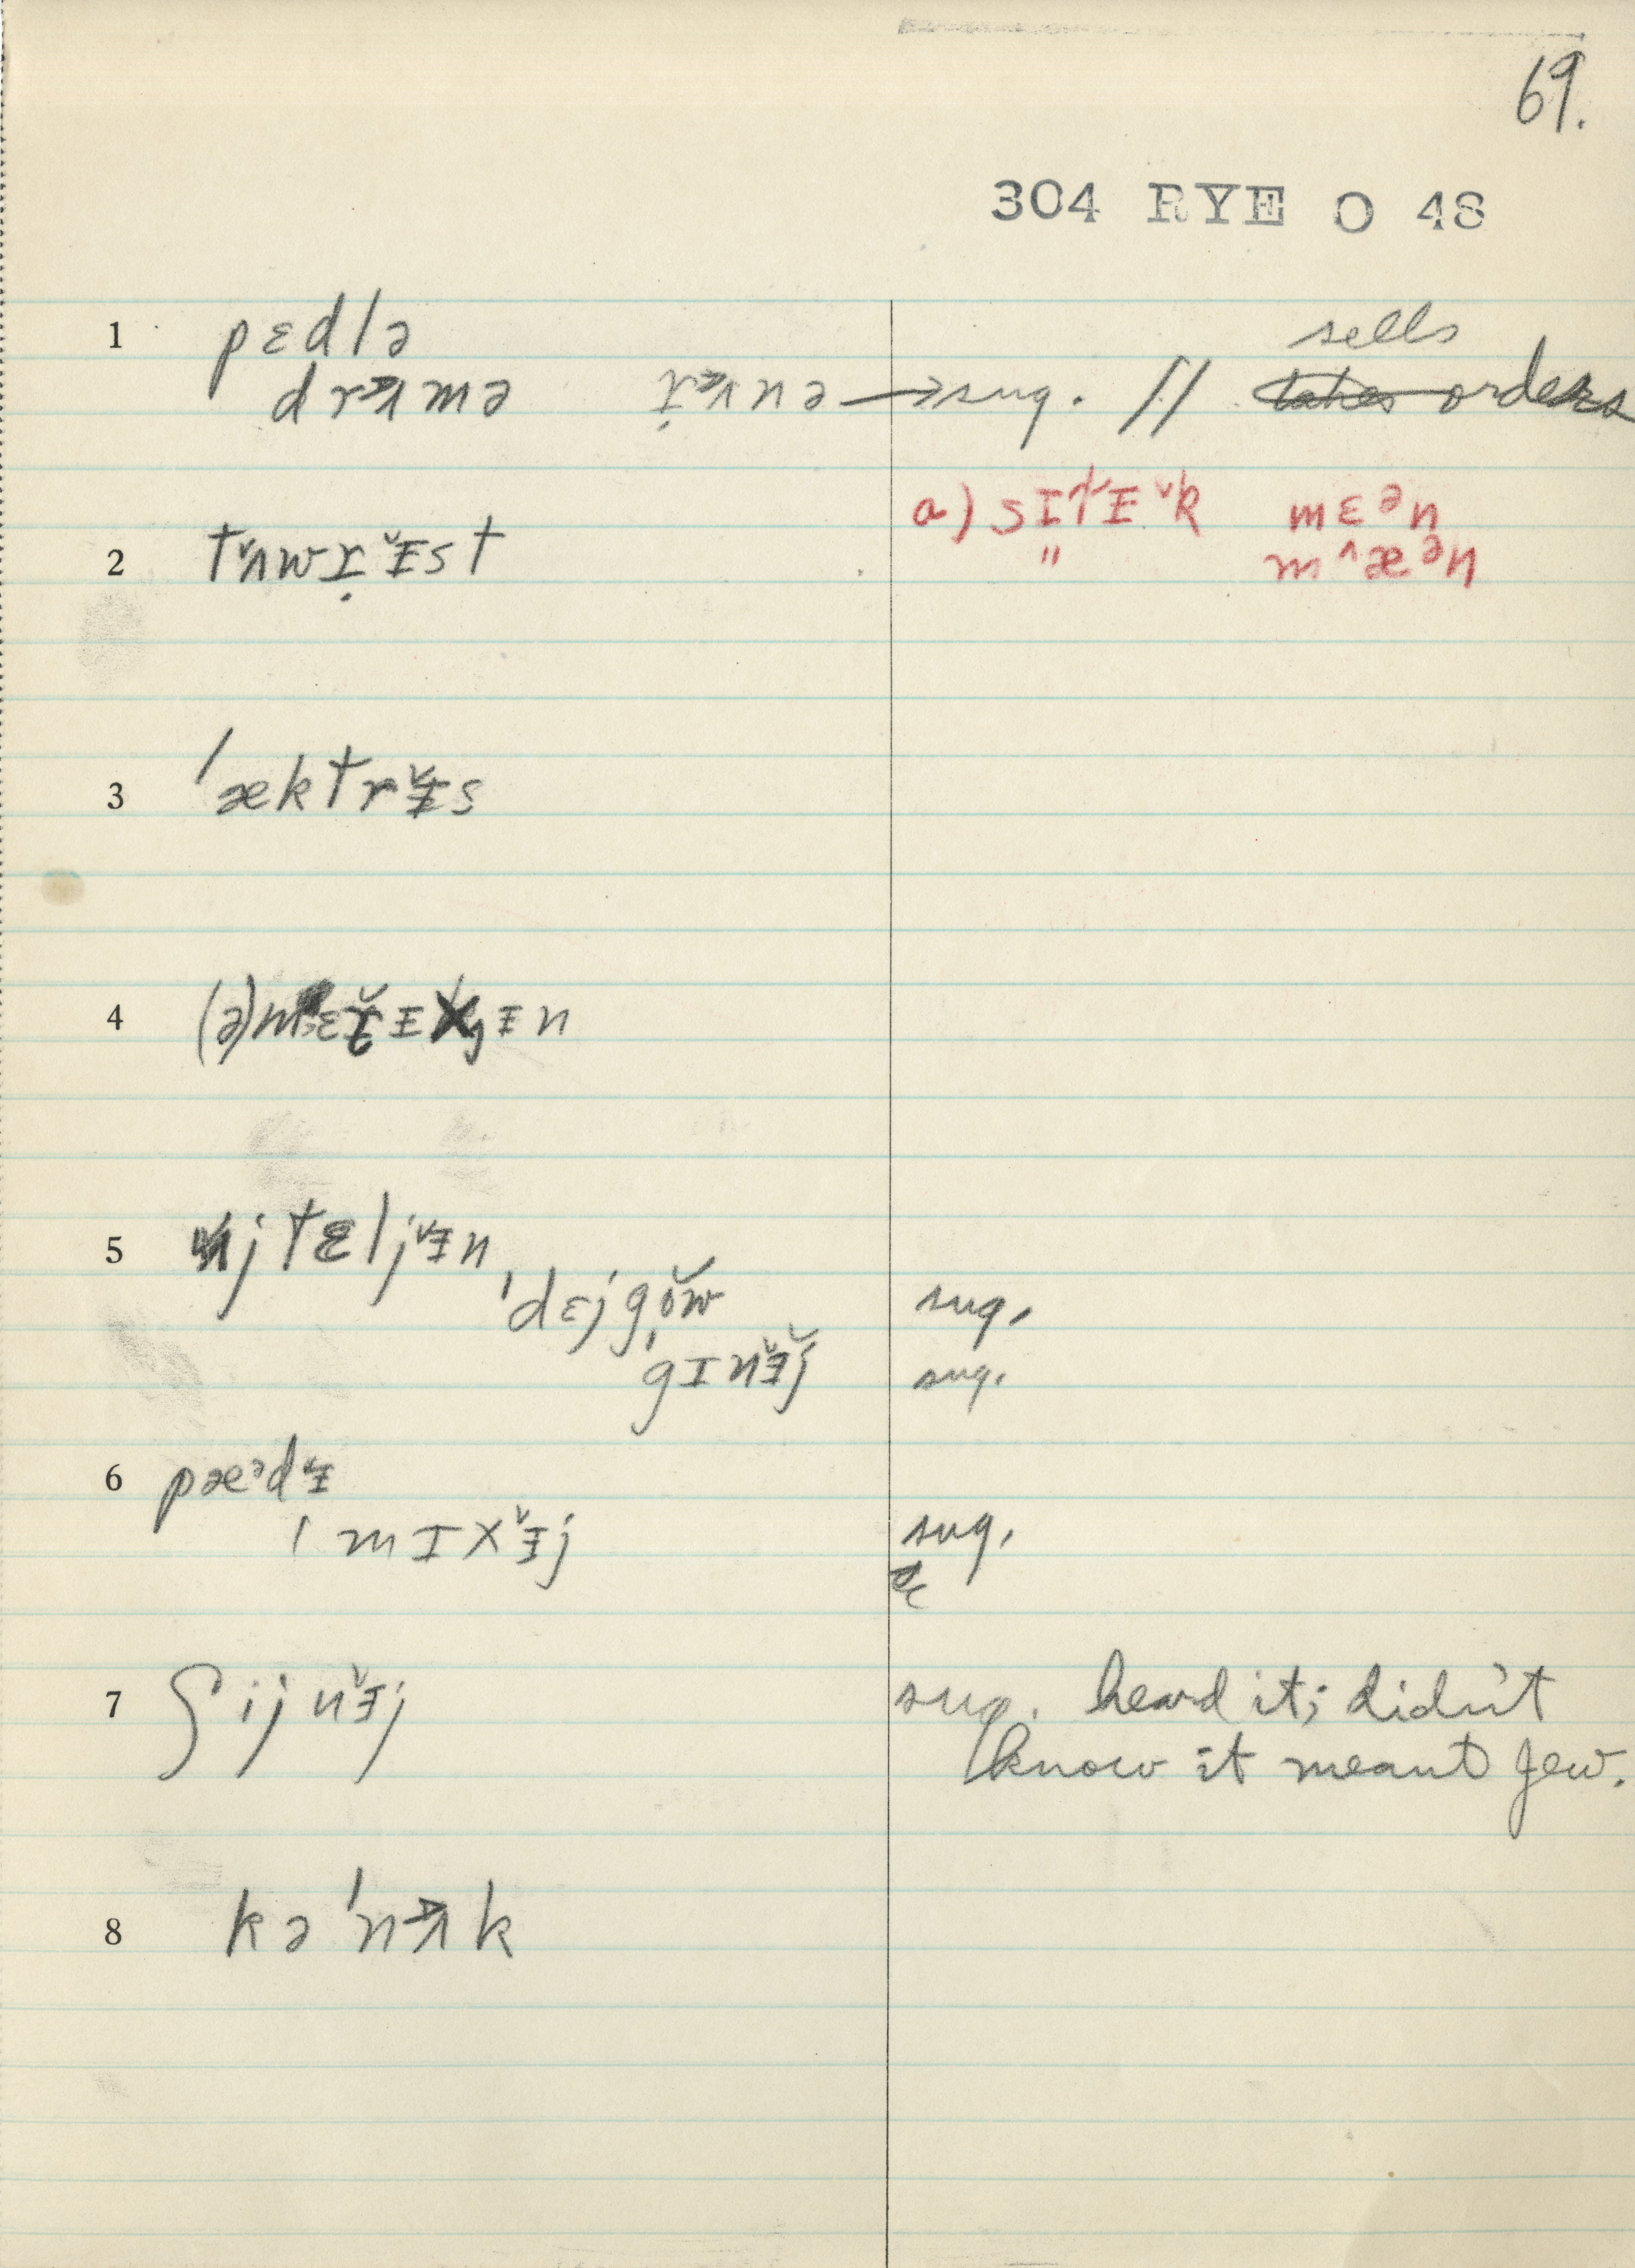 69.
304 RYE O 48
1 pɛdlə sells
drʌmə rʌnə → sug. // takes orders
a) sɪtɪk mɛᵊn
2 tʌwrɪst " mæᵊn
3 ˈæktrɪs
4 (ə)mɛrɪkɪn
5 ɪjtæljɪn
ˈdɛjgow sug.
ˈgɪnɪj sug.
6 pæᵊdɪ
ˈmɪxɪj sug.
7 ʃijnɪj sug. heard it; didn't
know it meant Jew.
8 kəˈnʌk